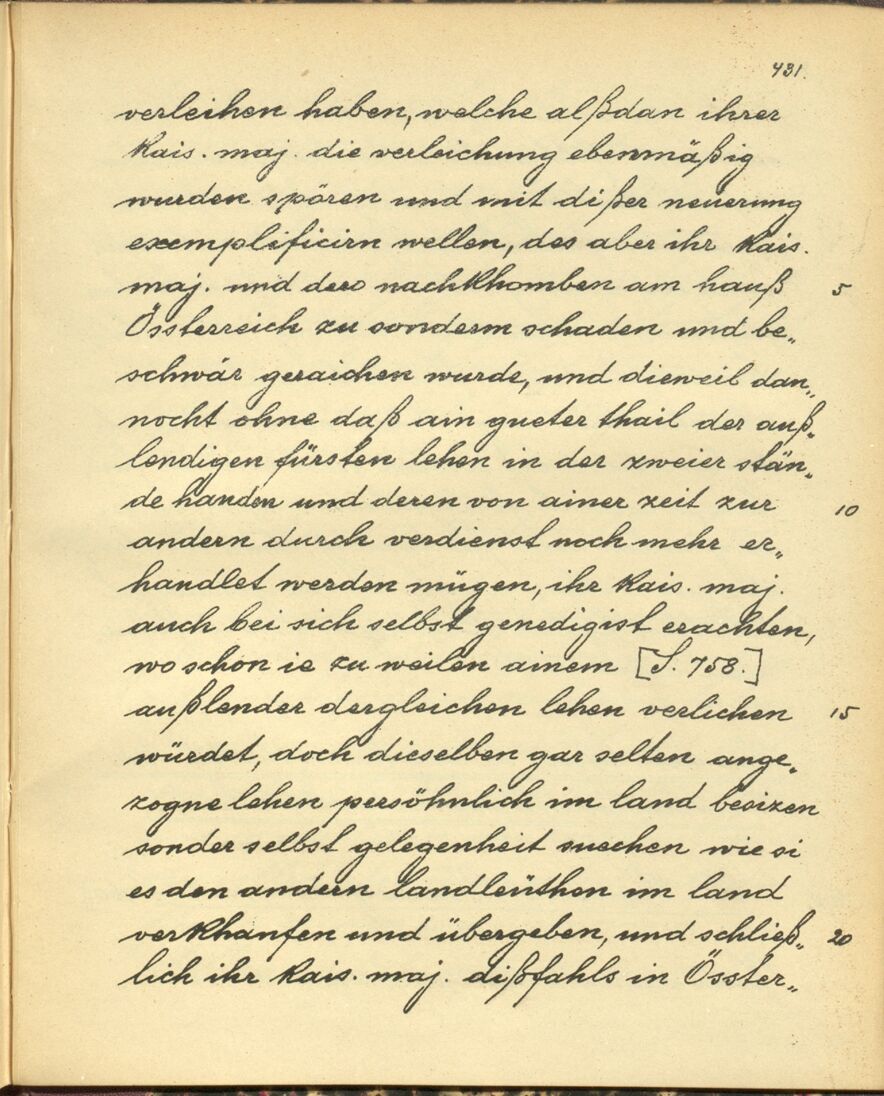 431.
verleihen haben, welche alßdan ihrer
Kais. maj. die verleichung ebenmäßig
wurden spören und mit dißer neuerung
exemplificirn wellen, des aber ihr Kais.
maj. und dero nachkhomben am hauß 5
Össterreich zu sonderm schaden und be„
schwär geraichen wurde, und dieweil dan„
nocht ohne daß ain gueter thail der auß„
lendigen fürsten lehen in der zweier stän„
de handen und deren von ainer zeit zur 10
andern durch verdienst noch mehr er„
handlet werden mügen, ihr Kais. maj.
auch bei sich selbst genedigist erachten,
wo schon ie zu weilen ainem [S. 758.]
außlender dergleichen lehen verlichen 15
würdet, doch dieselben gar selten ange„
zogne lehen persöhnlich im land besizen
sonder selbst gelegenheit suechen wie si
es den andern landleüthen im land
verkhaufen und übergeben, und schließ„ 20
lich ihr Kais. maj. dißfahls inÖsster„